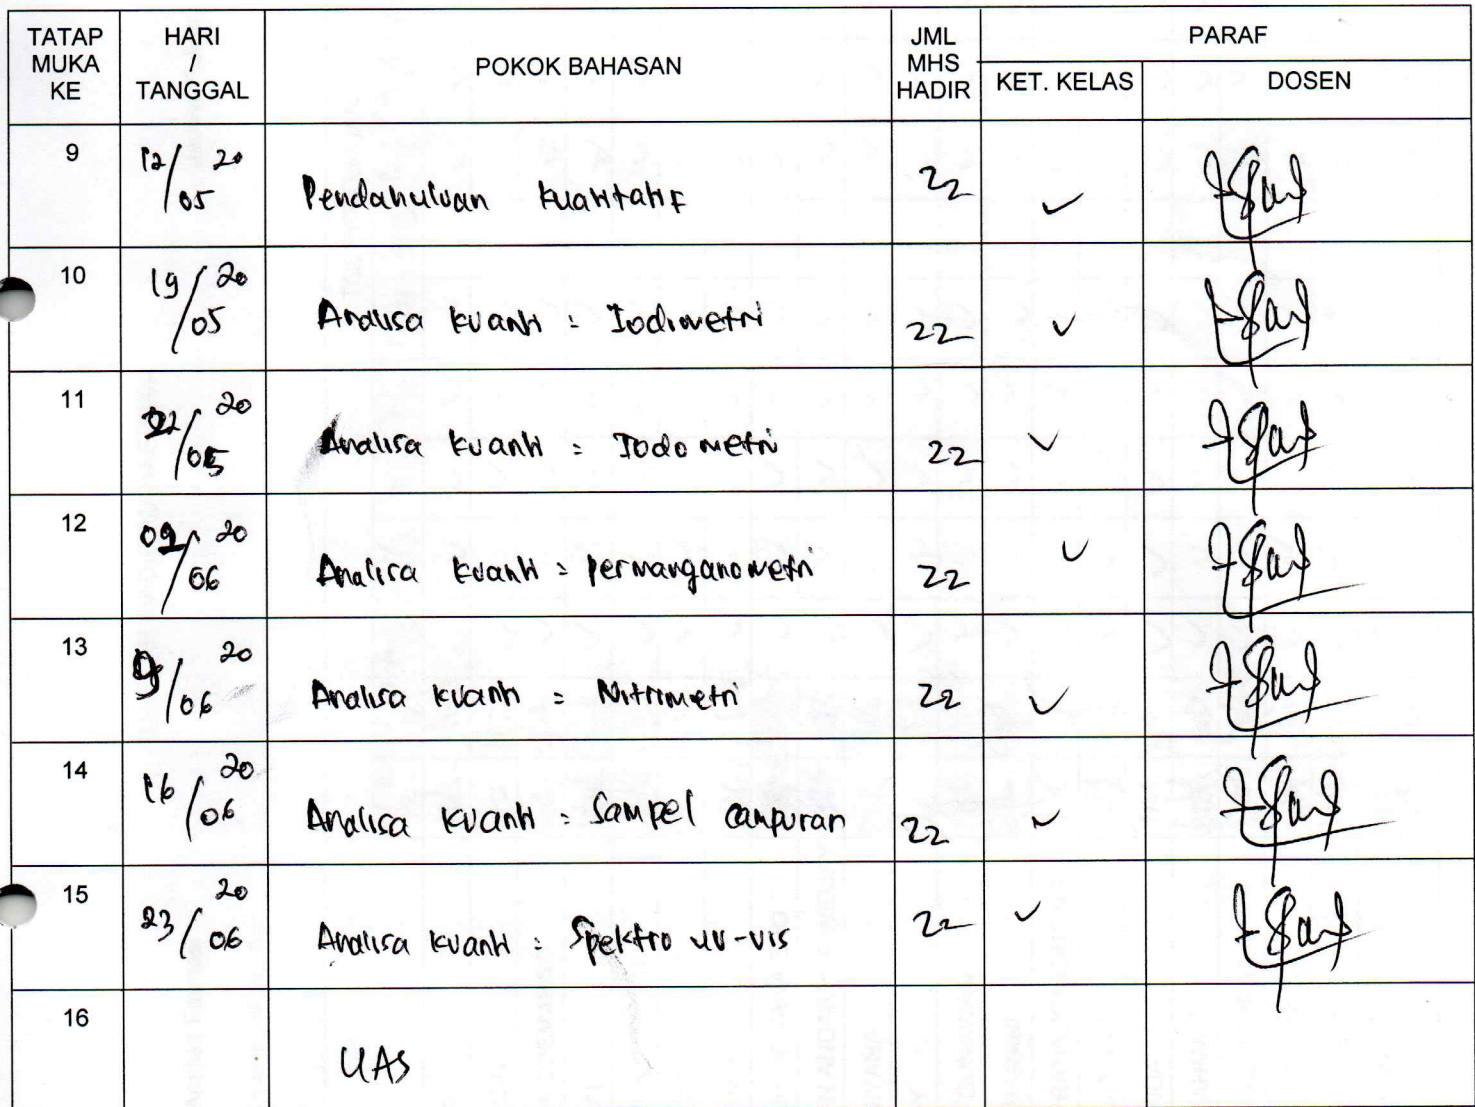 TATAP MUKA KE | HARI / TANGGAL | POKOK BAHASAN | JML MHS HADIR | PARAF
KET. KELAS | DOSEN
9 | 12/05 20 | Pendahuluan kuantatif | 22 | ✓
10 | 19/05 20 | Analisa kuanti : Iodimetri | 22 | ✓
11 | /05 20 | Analisa kuanti : Iodo metri | 22 | ✓
12 | 02/06 20 | Analisa kuanti : permanganometri | 22 | ✓
13 | 9/06 20 | Analisa kuanti : Nitrimetri | 22 | ✓
14 | 16/06 20 | Analisa kuanti : Sampel campuran | 22 | ✓
15 | 23/06 20 | Analisa kuanti : Spektro uv-vis | 22 | ✓
16 | UAS